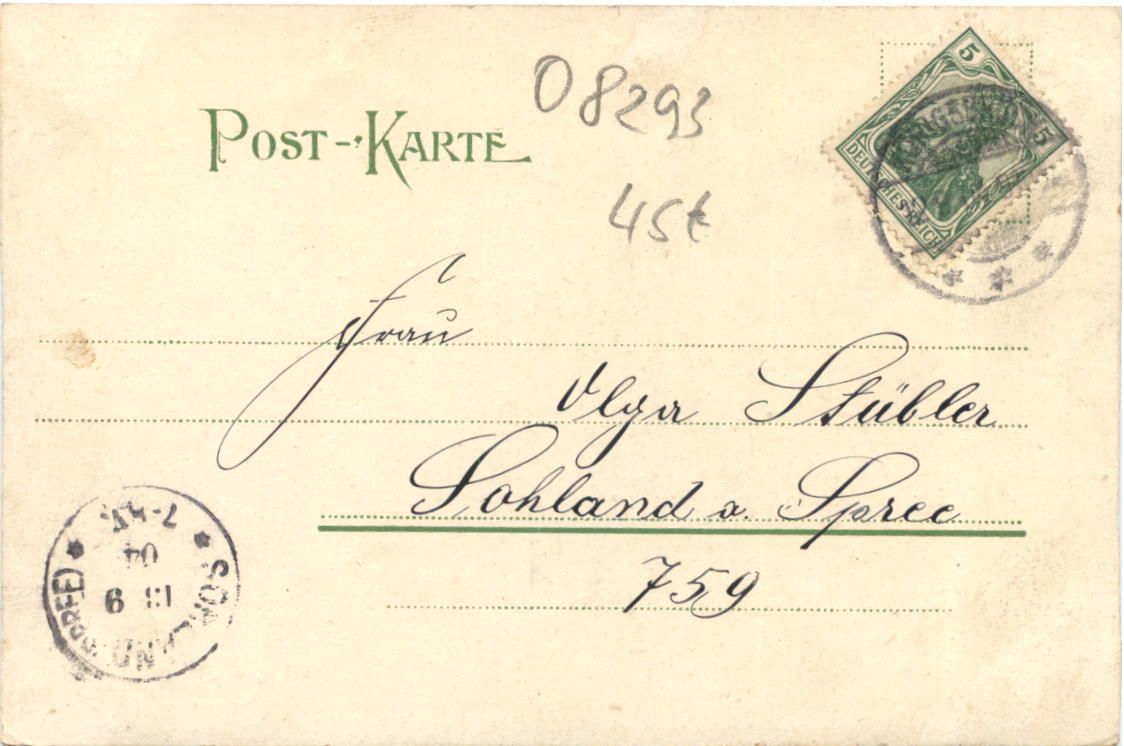 POST-KARTE
08293
45t
5
5
DEUTSCHES REICH
Frau
Olga Stübler
Sohland a. Spree
759
SOHLAND (SPREE)
7-8 V.
04